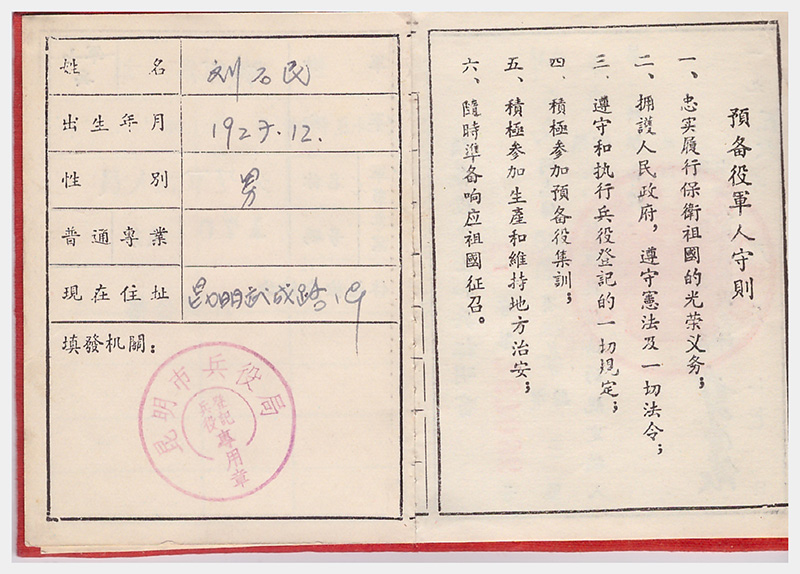 姓名 刘石民
出生年月 1927.12.
性別 男
普通專業
現在住址 昆明武成路
填發机關：
昆明市兵役局
兵役登記專用章
預备役軍人守則
一、忠实履行保衛祖國的光荣义务；
二、拥護人民政府，遵守憲法及一切法令；
三、遵守和执行兵役登記的一切規定；
四、積極參加預备役集訓；
五、積極參加生產和維持地方治安；
六、隨時準备响应祖國征召。